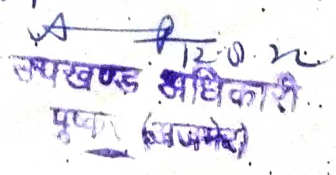 12.8.22
उपखण्ड अधिकारी
पुष्कर (अजमेर)